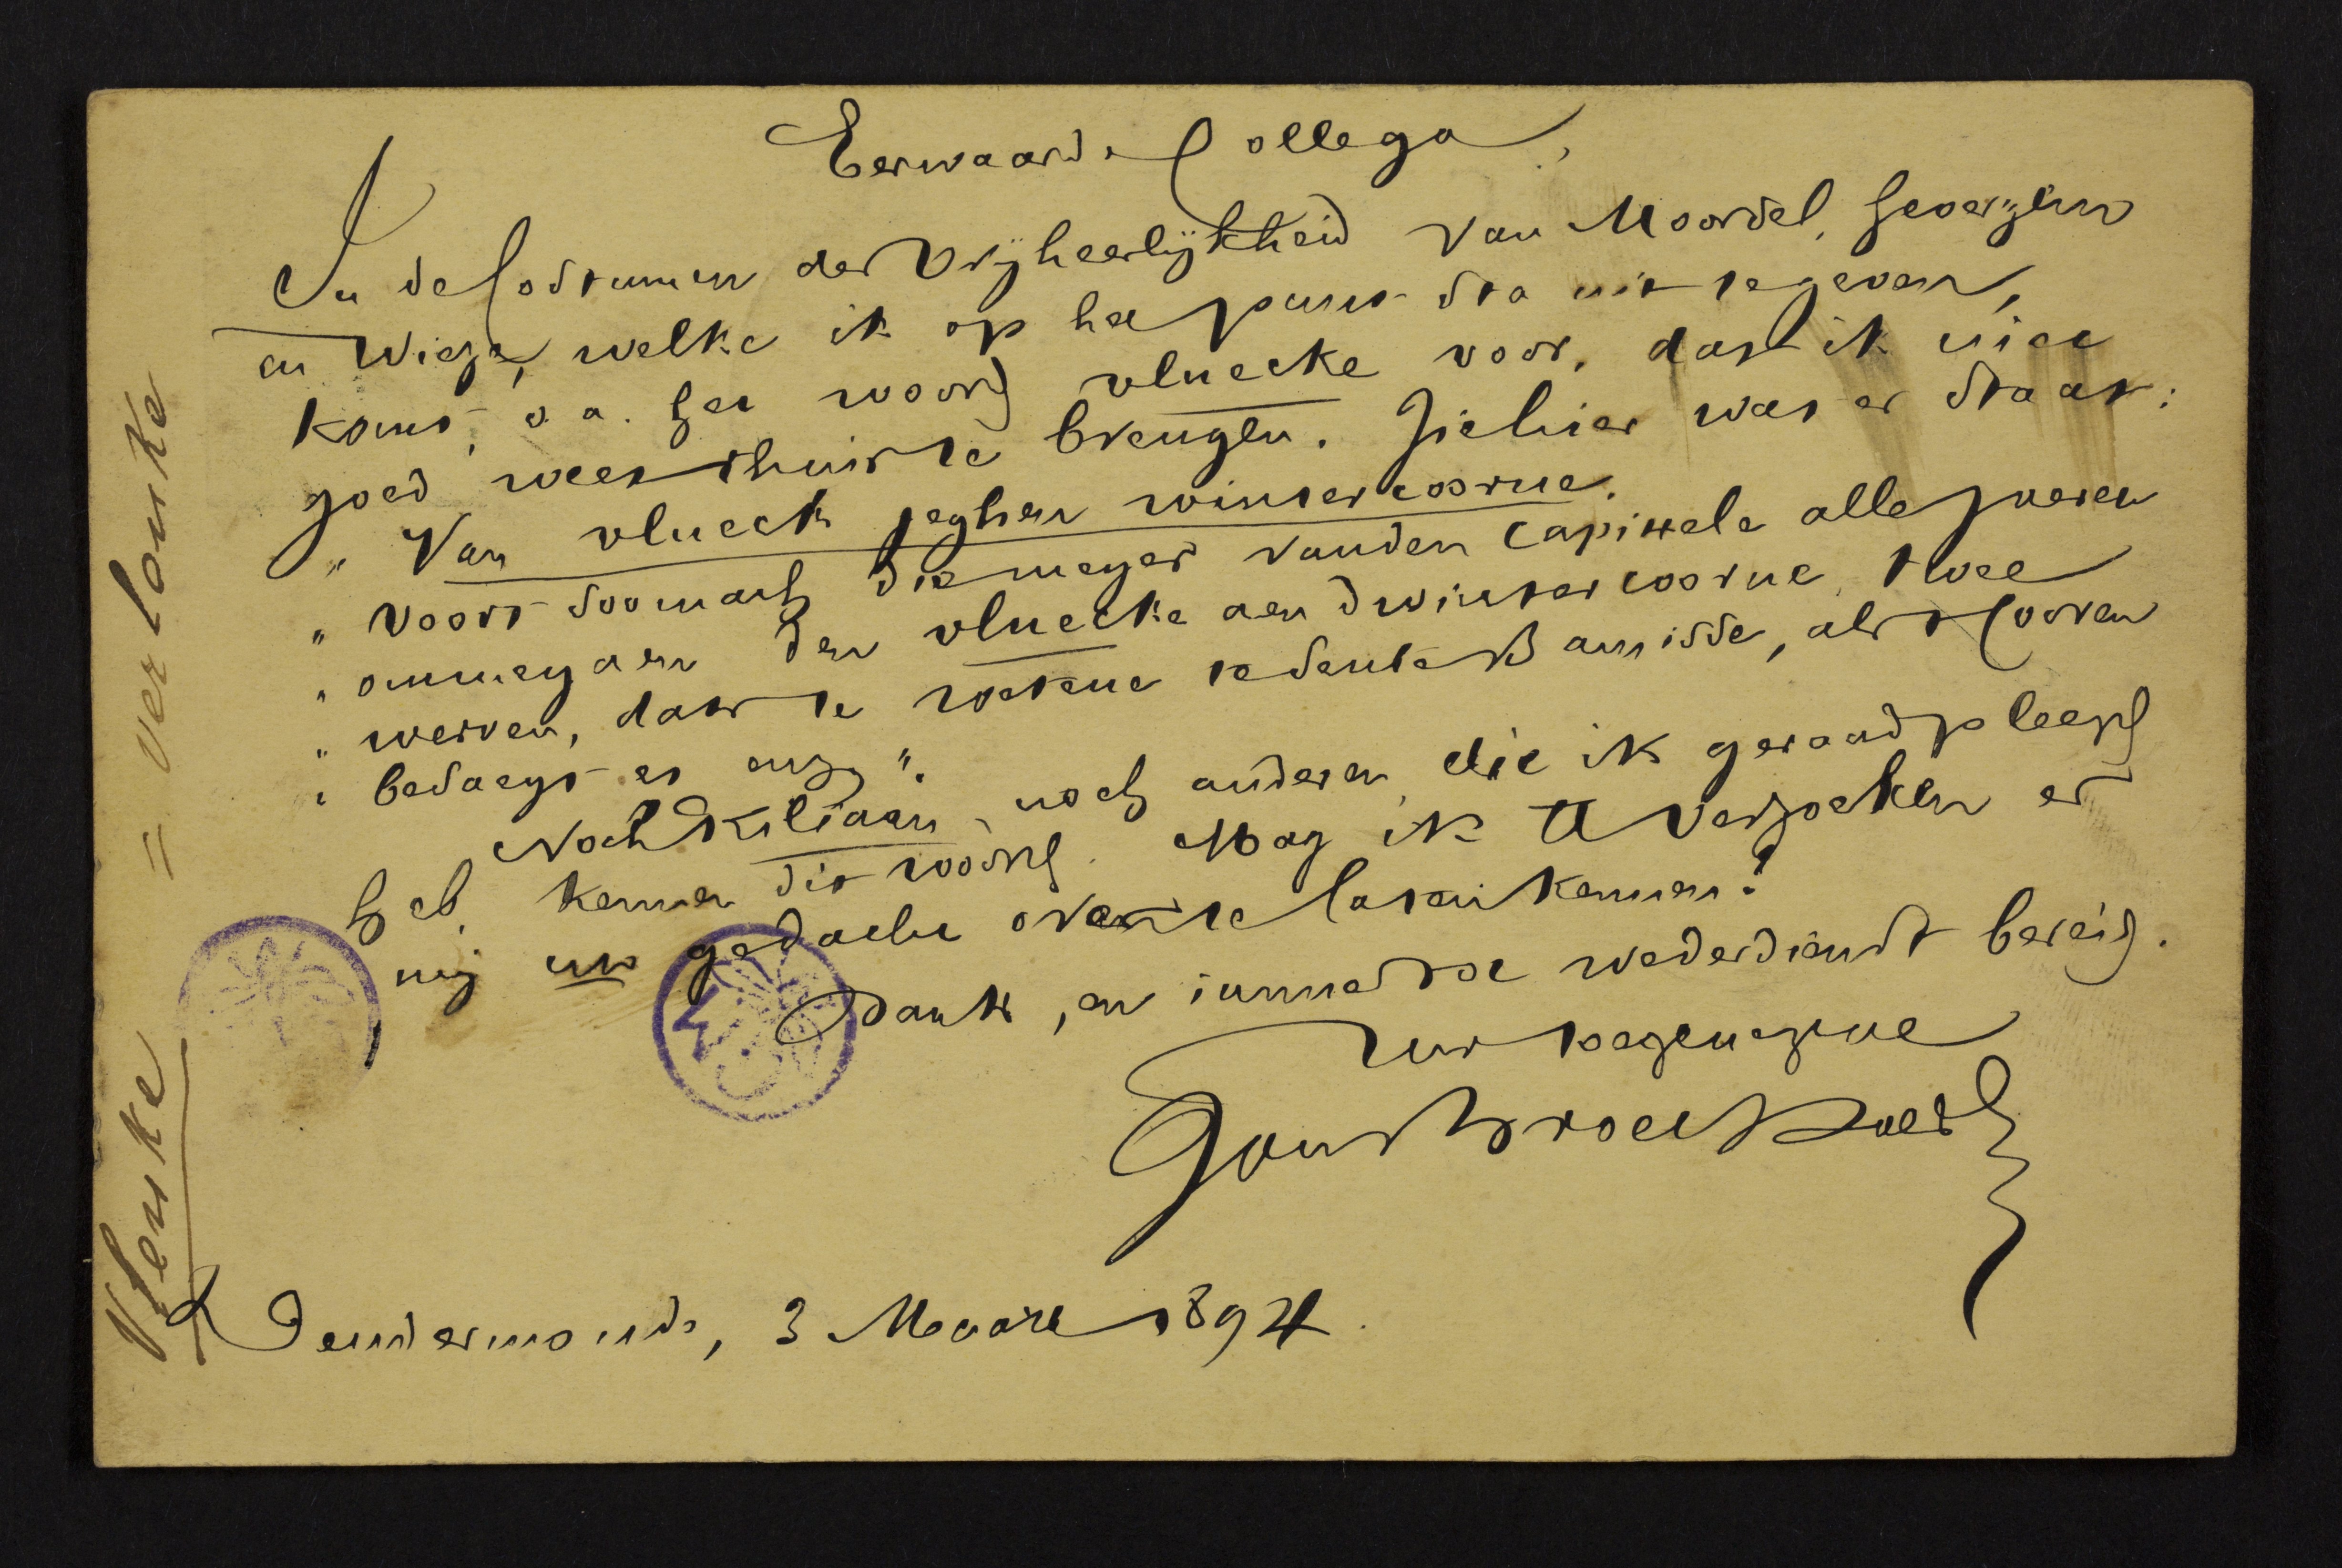 Eerwaarde Collega,
In de Costumen der Vrijheerlijkheid van Moorsel, Gevergem
en Wieze, welke ik op het punt sta uit te geven,
komt, o. a. het woord vluecke voor, dat ik niet
goed weet thuis te brengen. Ziehier wat er staat:
" Van vlueck jeghen wintercoorne.
" Voort soo mach die meyer vanden capittele alle jaeren
" ommegaen den vluecke aen dwintercoorne, twee
" werven, dats te wetene te sente Bamisse, als tCooren
" besaeyt es enz.".
Noch Kiliaen, noch anderen, die ik geraadpleegd
heb, kennen dit woord. Mag ik U verzoeken er
mij uw gedacht over te laten kennen?
Dank, en immer tot wederdienst bereid.
Uw toegenegene
Jan Broeckaert
Dendermonde, 3 Maart 1894.
Vlenke = verlonke